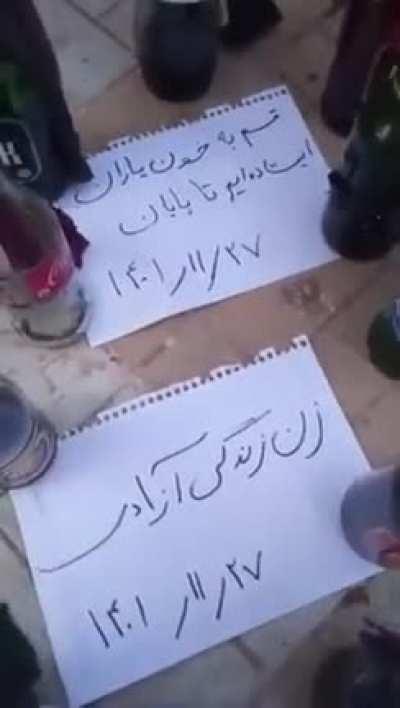 قسم به خون یاران
ایستاده‌ایم تا پایان
۱۴۰۱/۱۱/۲۷
زن زندگی آزادی
۱۴۰۱/۱۱/۲۷